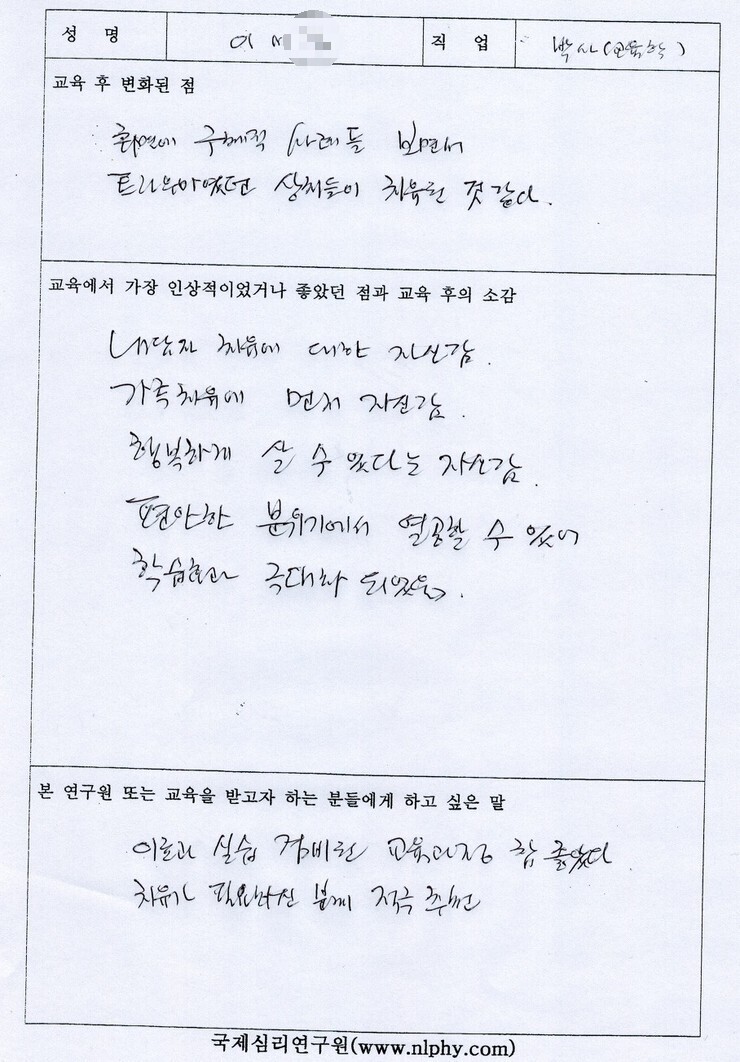 성 명 이 직 업 박사(교육학)
교육 후 변화된 점
최면에 구체적 사례들 보면서
트라우마였던 상처들이 치유된 것 같다.
교육에서 가장 인상적이었거나 좋았던 점과 교육 후의 소감
내담자 치유에 대한 자신감.
가족치유에 먼저 자신감.
행복하게 살 수 있다는 자신감.
편안한 분위기에서 열공할 수 있어
학습효과 극대화 되었음.
본 연구원 또는 교육을 받고자 하는 분들에게 하고 싶은 말
이론과 실습 겸비된 교육과정 참 좋았다
치유가 필요하신 분께 적극 추천
국제심리연구원(www.nlphy.com)